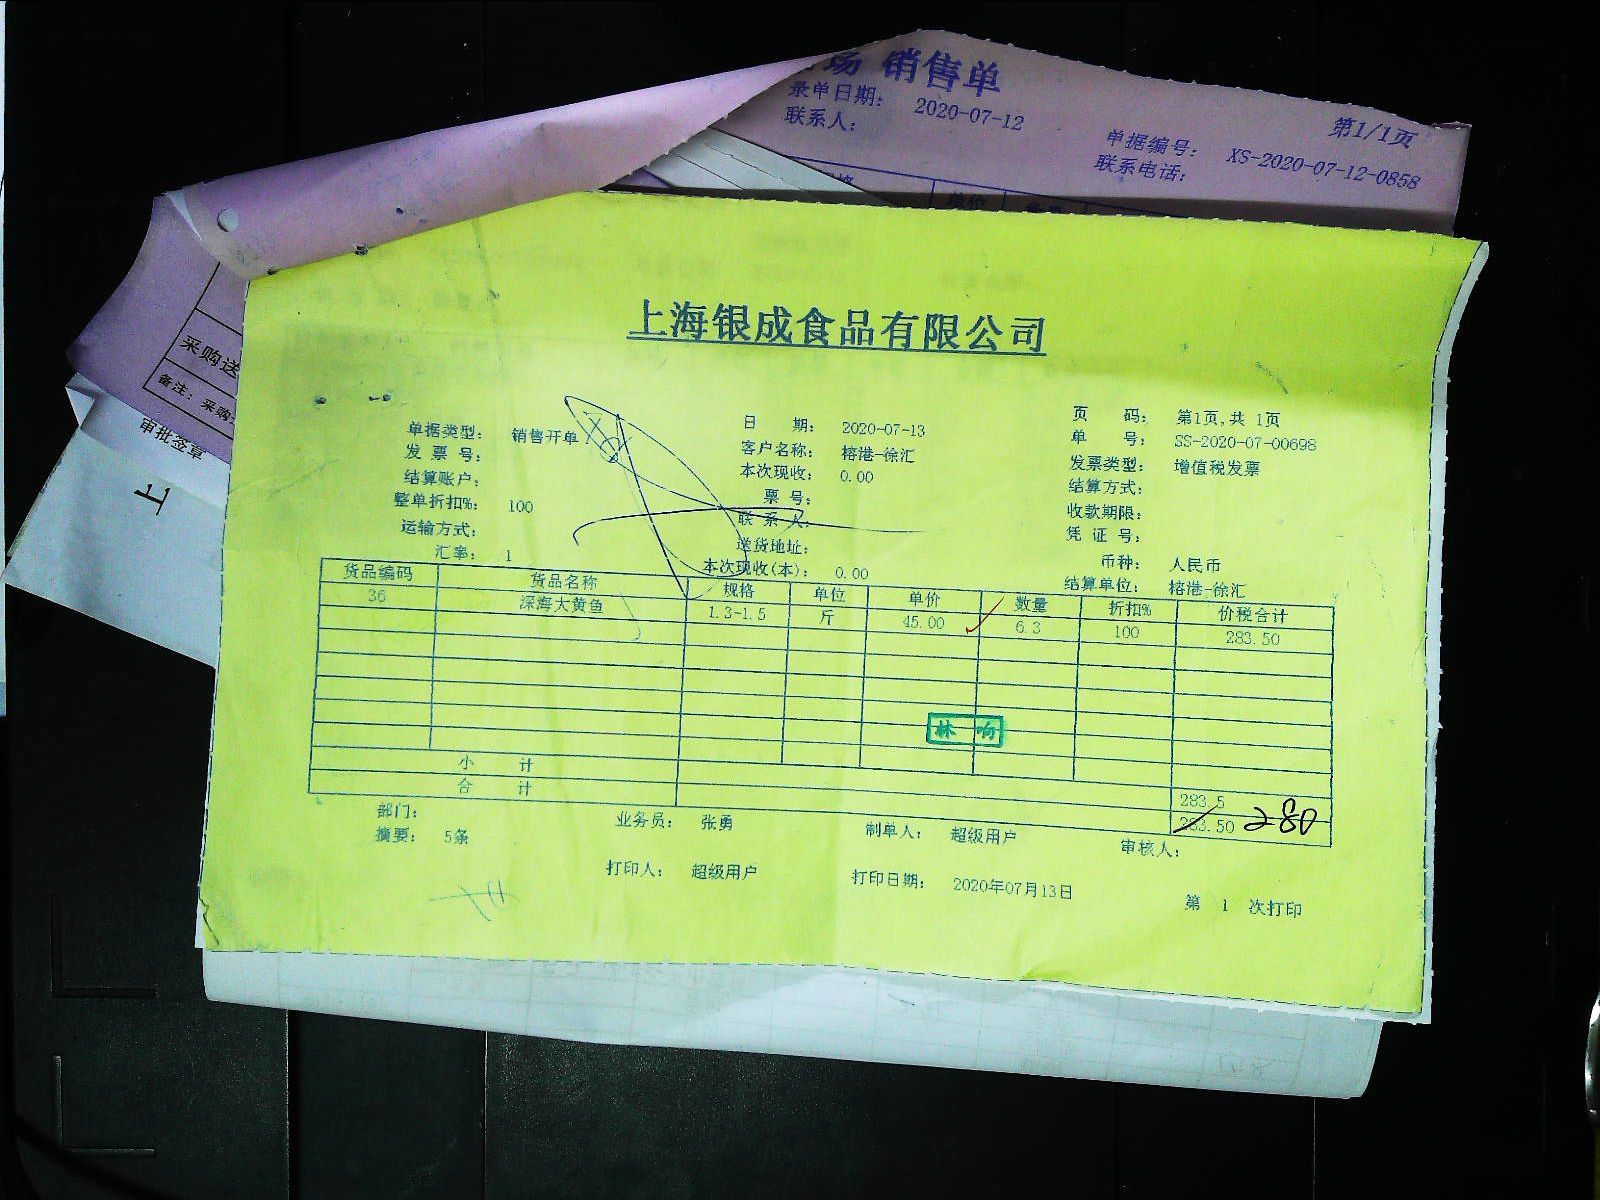 场 销售单
录单日期： 2020-07-12
第1/1页
联系人：
单据编号： XS-2020-07-12-0858
联系电话：
单位
采购送
备注：采购
审批签章
上
上海银成食品有限公司
单据类型： 销售开单 日 期： 2020-07-13 页 码： 第1页,共 1页
发 票 号： 客户名称： 榕港-徐汇 单 号： SS-2020-07-00698
结算账户： 本次现收： 0.00 发票类型： 增值税发票
整单折扣%： 100 票 号： 结算方式：
运输方式： 联 系 人： 收款期限：
汇率： 1 送货地址： 凭 证 号：
本次现收(本)： 0.00 币种： 人民币
结算单位： 榕港-徐汇
货品编码 货品名称 规格 单位 单价 数量 折扣% 价税合计
36 深海大黄鱼 1.3-1.5 斤 45.00 6.3 100 283.50
林 响
小 计 283.5
合 计 283.50 280
部门： 业务员： 张勇 制单人： 超级用户 审核人：
摘要： 5条
打印人： 超级用户 打印日期： 2020年07月13日 第 1 次打印